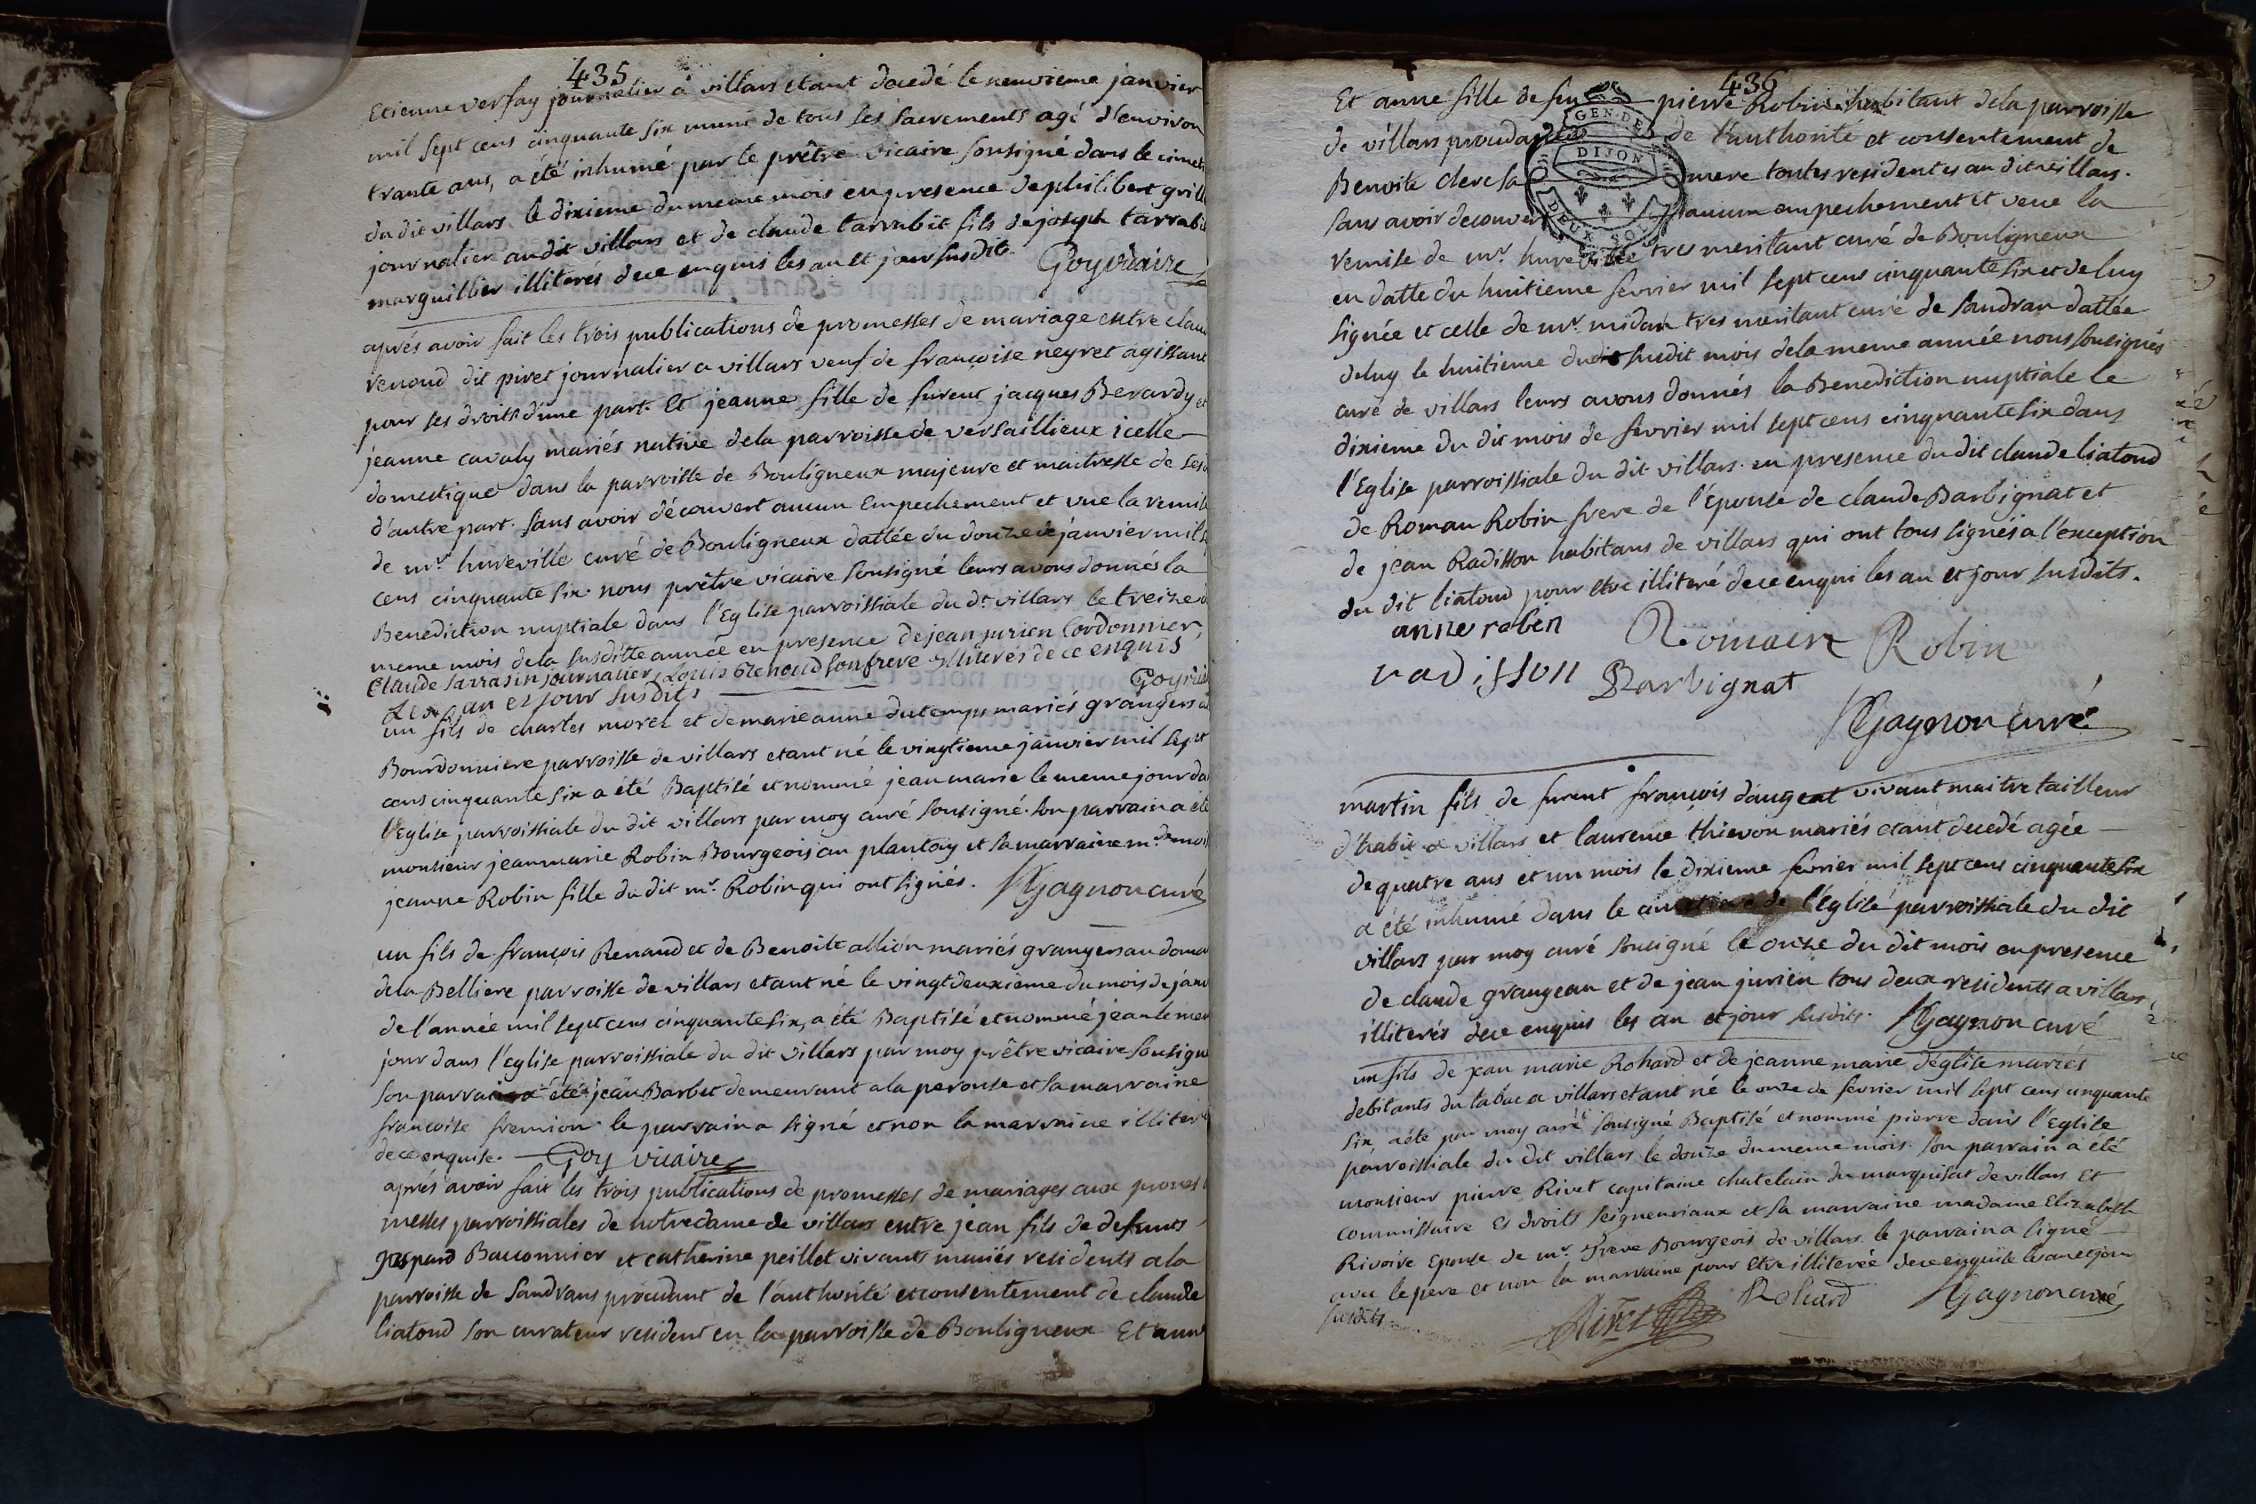 435
Etienne versay journalier a villars etant decedé le neuvieme janvier
mil sept cens cinquante six muni de tous les sacrements agé d'environ
trante ans, a été inhumé par le prêtre vicaire sousigné dans le cimet
du dit villars le dixieme du meme mois en presence de philibert grill
journalier au dit villars et de claude tarrabit fils de joseph tarrabi
marguillier illiterés de ce enquis les an et jour susdits. Goy vicaire
aprés avoir fait les trois publications de promesses de mariage entre clau
renoud dit piret journalier a villars veuf de françoise neyret agissant
pour ses droits d'une part. Et jeanne fille de fureut jacques Berardy et
jeanne cavaly mariés native de la parroisse de versaillieux icelle
domestique dans la parroisse de Bouligneux majeure et maitresse de ses
d'autre part. sans avoir découvert aucun empechement et vue la remise
de mr. hureville curé de Bouligneux dattée du douze de janvier mil s
cens cinquante six. nous prêtre vicaire sousigné leurs avons donnés la
Benediction nuptiale dans l'Eglise parroissiale du dt. villars le treize
meme mois de la susditte année en presence de jean jurien Cordonnier,
Claude sarrasin journalier, Louis Renoud son frere illiterés de ce enquis
Les an et jour susdits Goy
un fils de charles morel et de marie anne dutemps mariés grangers a
Bourdonniere parroisse de villars etant né le vingtieme janvier mil sept
cens cinquante six a été Baptisé et nommé jean marie le meme jour da
l'Eglise parroissiale du dit villars par moy curé sousigné. son parrain a été
monsieur jeanmarie Robin Bourgeois au plantay et sa marraine mdemoi
jeanne Robin fille du dit mr. Robin qui ont signés. Gagnon curé
un fils de françois Renaud et de Benoite allion mariés grangers au doma
de la Belliere parroisse de villars etant né le vingt deuxieme du mois de janv
de l'année mil sept cens cinquante six, a été Baptisé et nommé jean le mem
jour dans l'eglise parroissiale du dit villars par moy prêtre vicaire sousigné
son parrain a été jean Barbet demeurant a la perouse et sa marraine
françoise fremion. le parrain a signé et non la marraine illiteré
de ce enquise. Goy vicaire
aprés avoir fait les trois publications de promesses de mariages aux prones
messes parroissiales de notre dame de villars entre jean fils de defunts
gaspard Bauonnier et catherine peillet vivants mariés residents a la
parroisse de Sandrans procedant de l'authorité et consentement de claude
liatoud son curateur resident en la parroisse de Bouligneux Et anne
436
Et anne fille de feu pierre Robin habitant de la parroisse
de villars procedant de l'authorité et consentement de
Benoite clerc sa mere toutes residentes au dit villars.
sans avoir decouvert aucun empechement et veue la
GEN. DE DIJON DEUX SOLS
remise de mr. hureville tres meritant curé de Bouligneux
en datte du huitieme fevrier mil sept cens cinquante six et de luy
signée et celle de mr. midan tres meritant curé de Sandran dattée
de luy le huitieme du susdit mois de la meme année nous sousignés
curé de villars leurs avons donnés la Benediction nuptiale le
dixieme du dit mois de fevrier mil sept cens cinquante six dans
l'Eglise parroissiale du dit villars. en presence du dit claude liatoud
de Roman Robin frere de l'Epouse de claude Barbignat et
de jean Radisson habitans de villars qui ont tous signés a l'exception
du dit liatoud pour etre illiteré de ce enqui les an et jour susdits.
anne robin Romain Robin
radisson Barbignat
Gagnon curé
martin fils de furent françois daugeat vivant maitre tailleur
d'habit a villars et laurence thievon mariés etant decedé agée
de quatre ans et un mois le dixieme fevrier mil sept cens cinquante six
a été inhumé dans le cimetiere de l'Eglise parroissiale du dit
villars par moy curé sousigné le onze du dit mois en presence
de claude grangean et de jean jurien tous deux residents a villars
illiterés de ce enquis les an et jour susdits. Gagnon curé
un fils de jean marie Rohard et de jeanne marie d'église mariés
debitants du tabac a villars etant né le onze de fevrier mil sept cens cinquante
six, a été par moy curé sousigné Baptisé et nommé pierre dans l'Eglise
parroissiale du dit villars le douze du meme mois. son parrain a été
monsieur pierre Rivet capitaine chatelain du marquisat de villars Et
commissaire es droits seigneuriaux et sa marraine madame Elizabeth
Rivoire Epouse de mr. frere Bourgeois de villars. le parrain a signé
avec le pere et non la marraine pour etre illiterée de ce enquise les an et jour
susdits. Rivet Rohard Gagnon curé